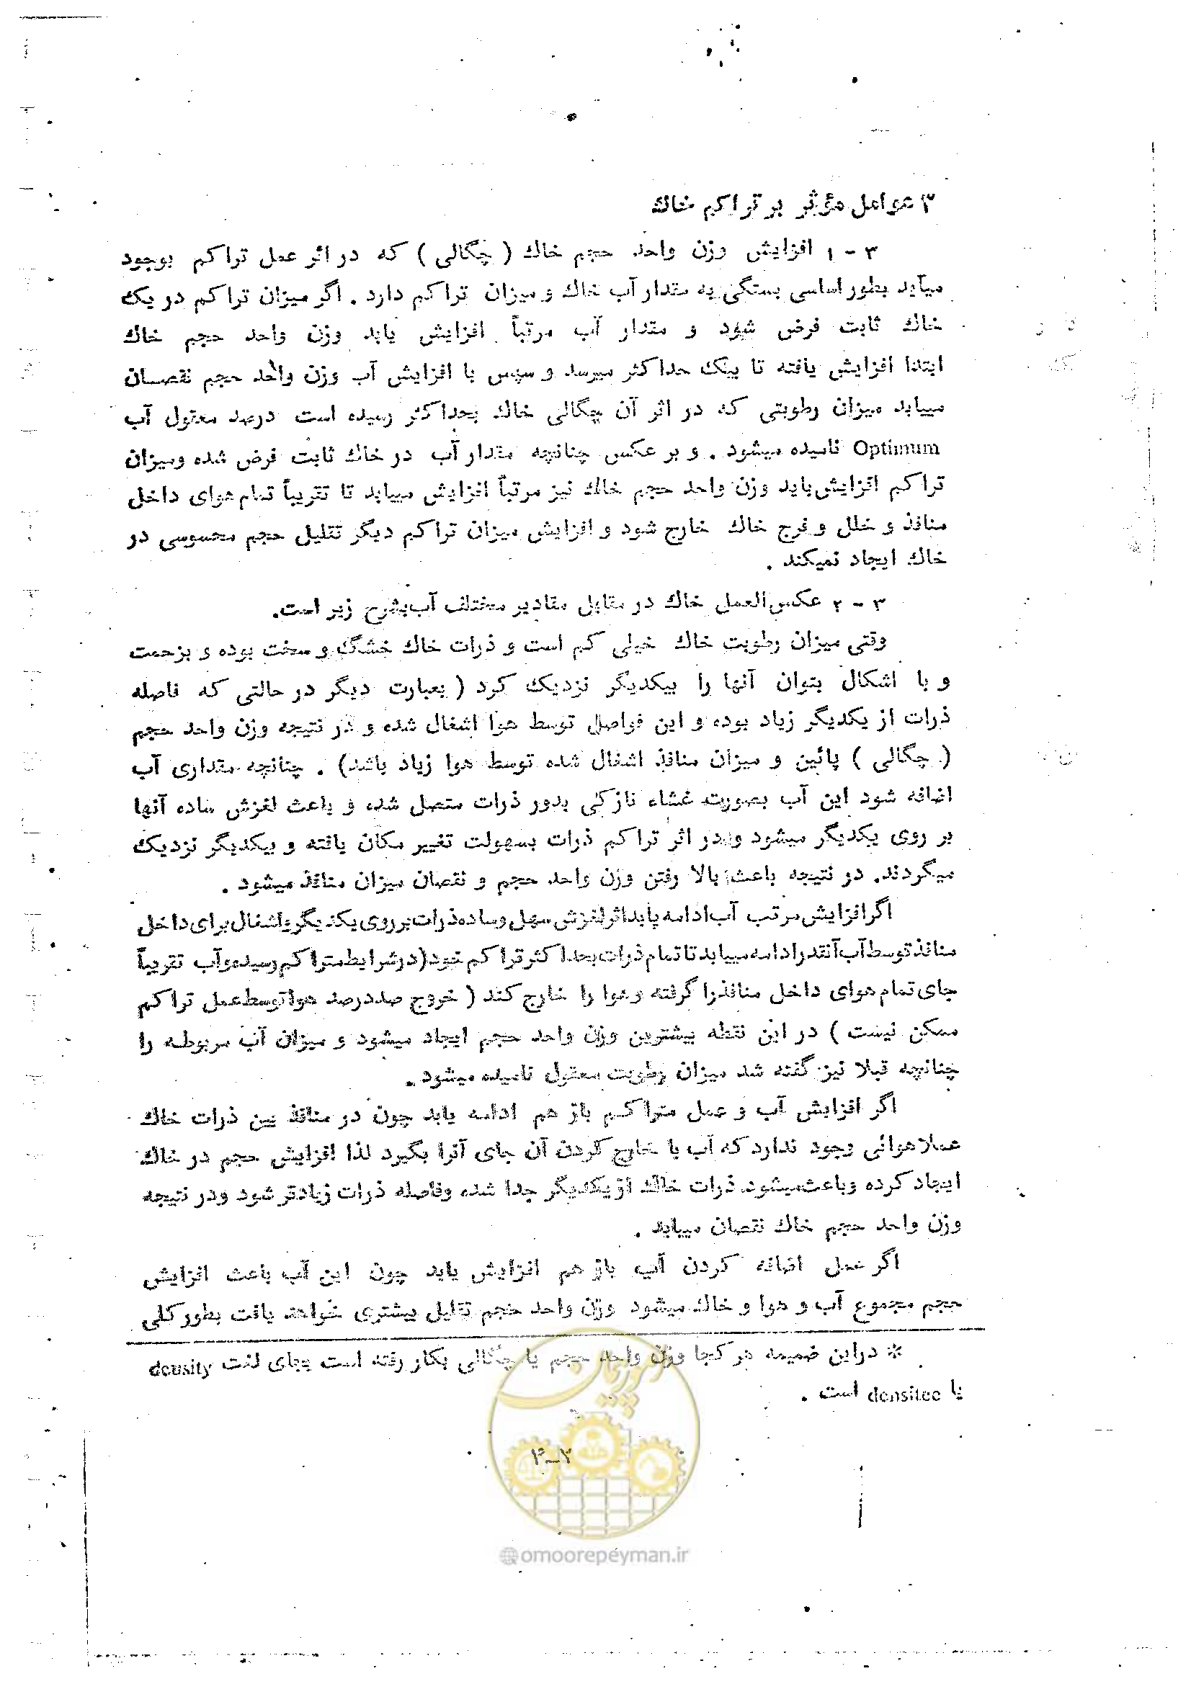 ۳ عوامل مؤثر بر تراکم خاك
۳ - ۱ افزایش وزن واحد حجم خاك ( چگالی ) که در اثر عمل تراکم بوجود
میآید بطور اساسی بستگی به مقدار آب خاك و میزان تراکم دارد . اگر میزان تراکم در یك
خاك ثابت فرض شود و مقدار آب مرتباً افزایش یابد وزن واحد حجم خاك
ابتدا افزایش یافته تا بیك حداکثر میرسد و سپس با افزایش آب وزن واحد حجم نقصان
مییابد میزان رطوبتی که در اثر آن چگالی خاك بحداکثر رسیده است درصد معقول آب
Optimum نامیده میشود . و بر عکس چنانچه مقدار آب در خاك ثابت فرض شده ومیزان
تراکم افزایش یابد وزن واحد حجم خاك نیز مرتباً افزایش مییابد تا تقریباً تمام هوای داخل
منافذ و خلل و فرج خاك خارج شود و افزایش میزان تراکم دیگر تقلیل حجم محسوسی در
خاك ایجاد نمیکند .
۳ - ۲ عکس‌العمل خاك در مقابل مقادیر مختلف آب بشرح زیر است.
وقتی میزان رطوبت خاك خیلی کم است و ذرات خاك خشك و سخت بوده و بزحمت
و با اشکال بتوان آنها را بیکدیگر نزدیك کرد ( بعبارت دیگر در حالتی که فاصله
ذرات از یکدیگر زیاد بوده و این فواصل توسط هوا اشغال شده و در نتیجه وزن واحد حجم
( چگالی ) پائین و میزان منافذ اشغال شده توسط هوا زیاد باشد) . چنانچه مقداری آب
اضافه شود این آب بصورت غشاء نازکی بدور ذرات متصل شده و باعث لغزش ساده آنها
بر روی یکدیگر میشود و در اثر تراکم ذرات بسهولت تغییر مکان یافته و بیکدیگر نزدیك
میگردند. در نتیجه باعث بالا رفتن وزن واحد حجم و نقصان میزان منافذ میشود .
اگر افزایش مرتب آب ادامه یابد اثر لغزش سهل و ساده ذرات بر روی یکدیگر و اشغال برای داخل
منافذ توسط آب آنقدر ادامه مییابد تا تمام ذرات بحداکثر تراکم خود (در شرایط متراکم رسیده و آب تقریباً
جای تمام هوای داخل منافذ را گرفته و هوا را خارج کند ( خروج صددرصد هوا توسط عمل تراکم
ممکن نیست ) در این نقطه بیشترین وزن واحد حجم ایجاد میشود و میزان آب مربوطه را
چنانچه قبلا نیز گفته شد میزان رطوبت معقول نامیده میشود .
اگر افزایش آب و عمل متراکم باز هم ادامه یابد چون در منافذ بین ذرات خاك
عملا هوائی وجود ندارد که آب با خارج کردن آن جای آنرا بگیرد لذا افزایش حجم در خاك
ایجاد کرده و باعث میشود ذرات خاك از یکدیگر جدا شده وفاصله ذرات زیادتر شود ودر نتیجه
وزن واحد حجم خاك نقصان مییابد .
اگر عمل اضافه کردن آب باز هم افزایش یابد چون این آب باعث افزایش
حجم مجموع آب و هوا و خاك میشود وزن واحد حجم تقلیل بیشتری خواهد یافت بطور کلی
* در این ضمیمه هر کجا وزن واحد حجم یا چگالی بکار رفته است بجای لغت density
یا densitee است .
امور پیمان
۳-۲
@omoorepeyman.ir